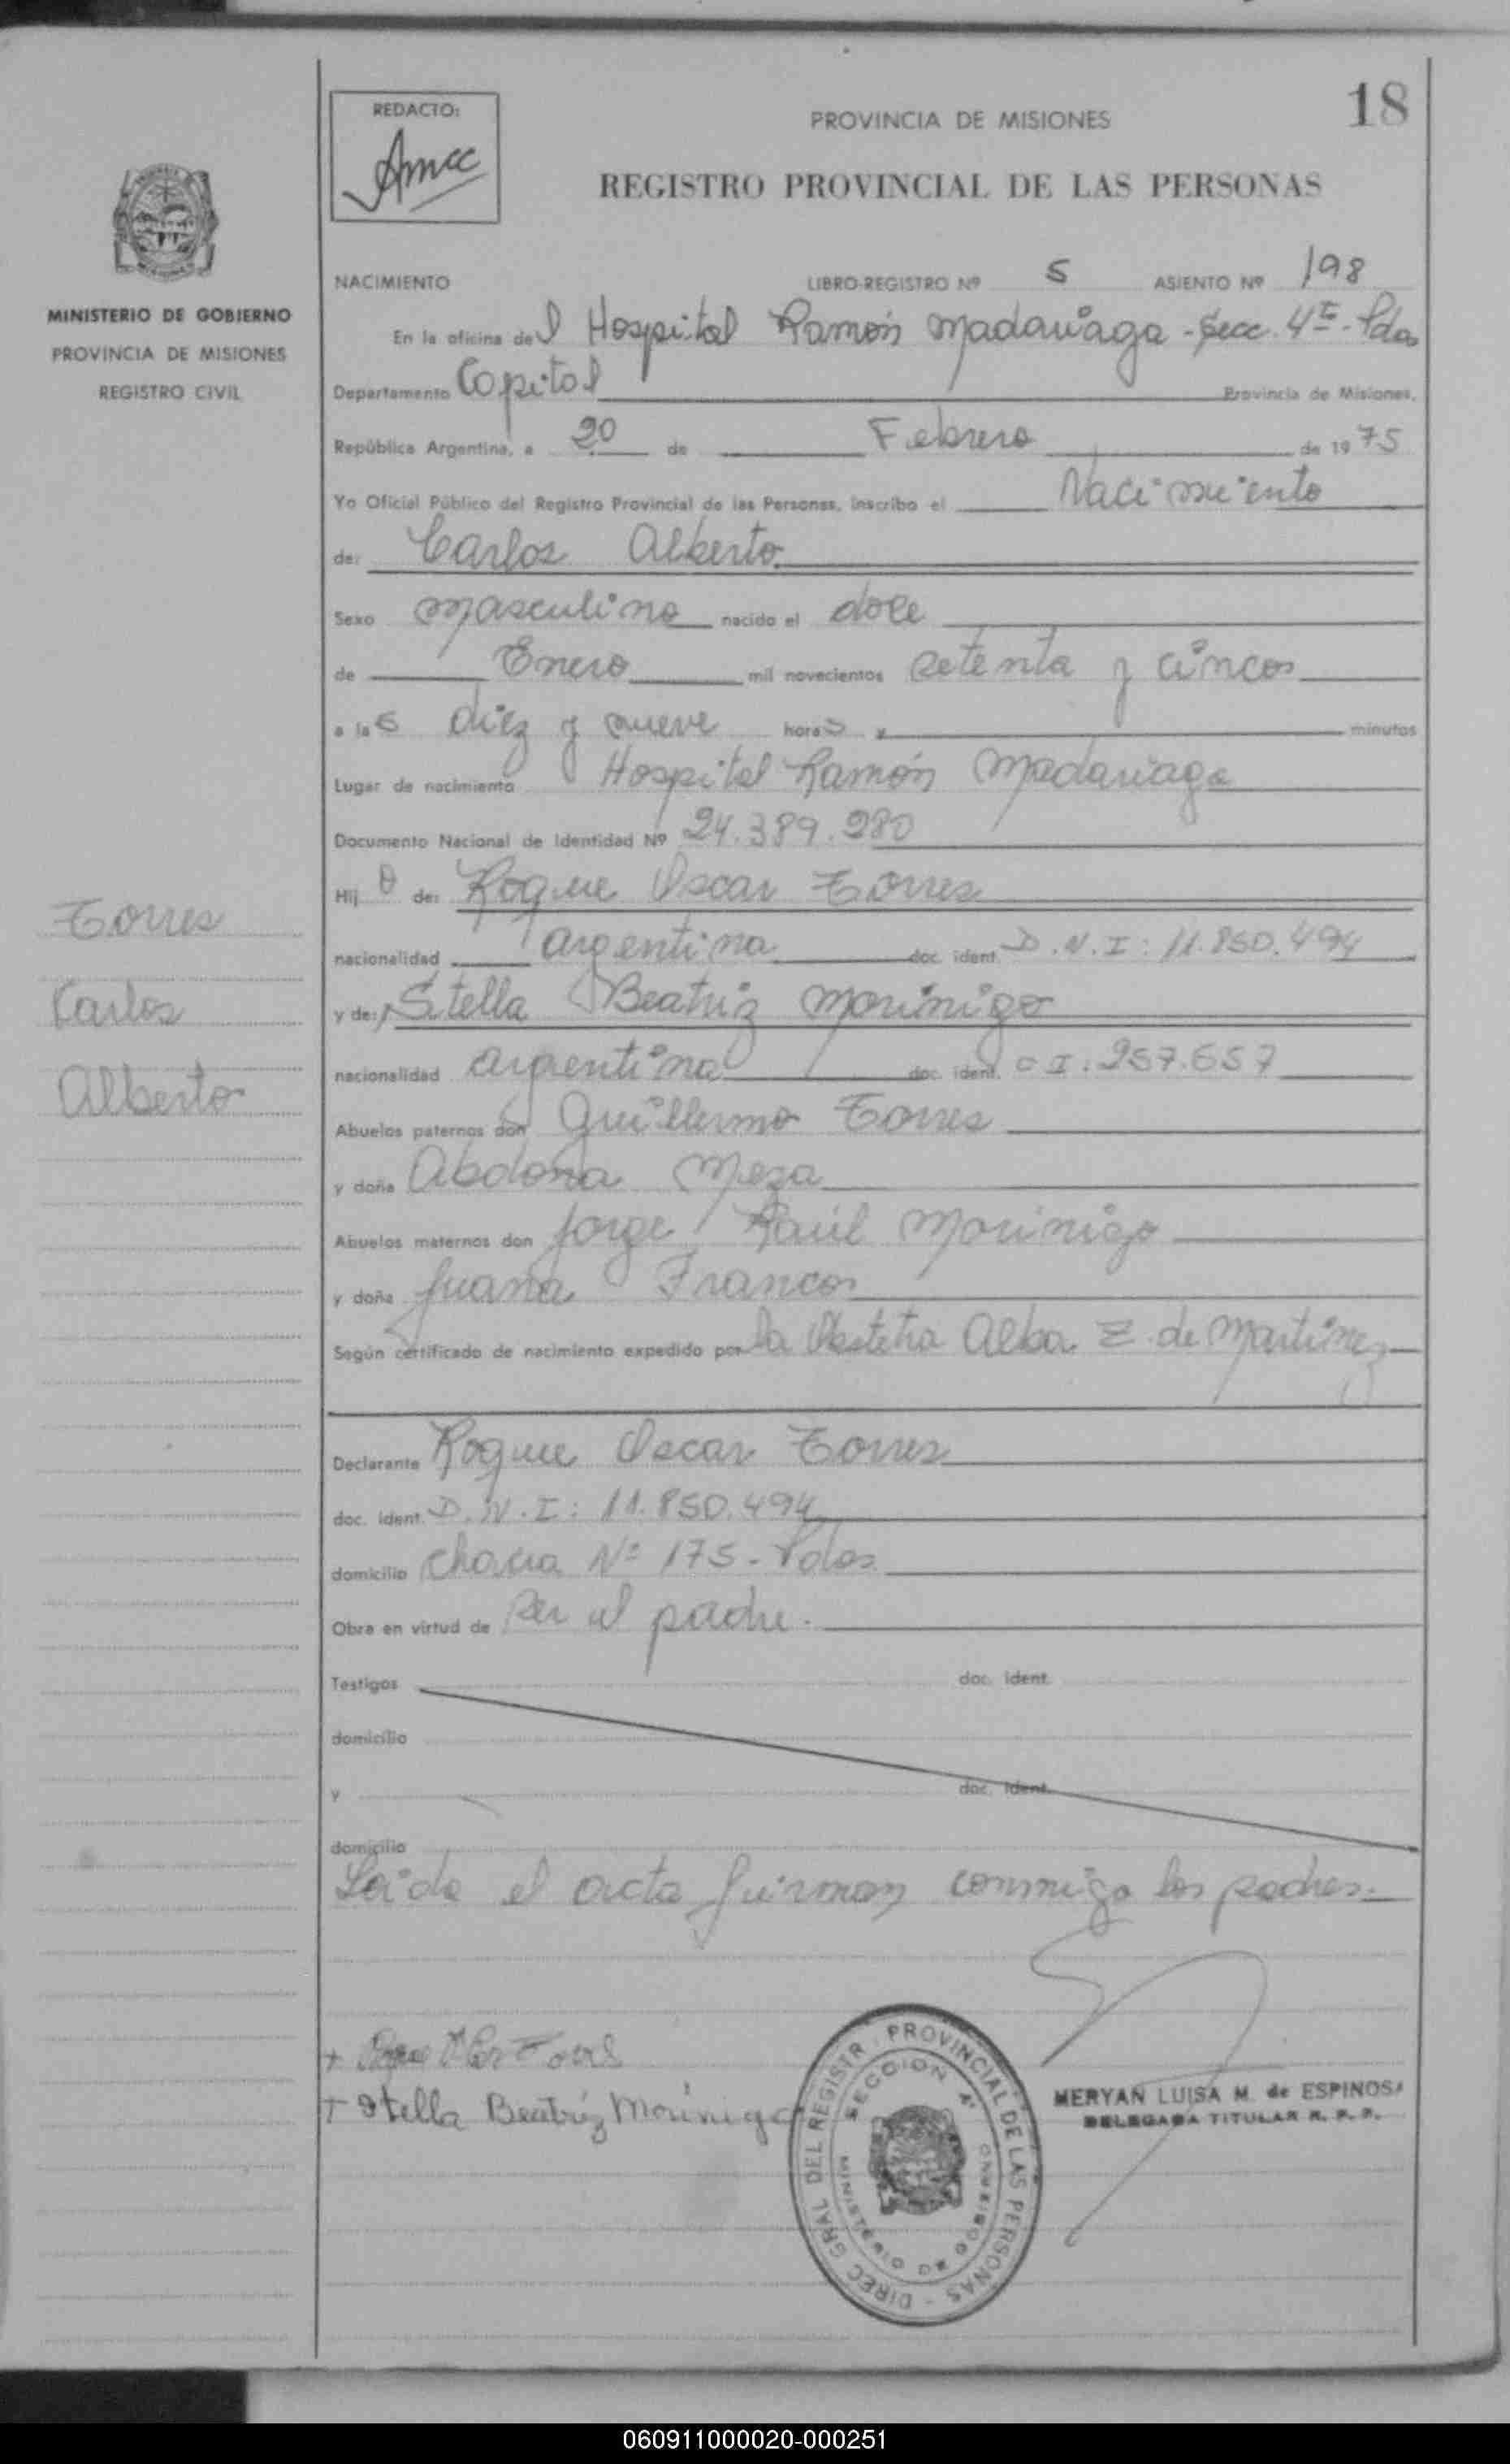 18
REDACTO:
Amcc
PROVINCIA DE MISIONES
REGISTRO PROVINCIAL DE LAS PERSONAS
MINISTERIO DE GOBIERNO
PROVINCIA DE MISIONES
REGISTRO CIVIL
NACIMIENTO LIBRO-REGISTRO Nº 5 ASIENTO Nº 198
En la oficina del Hospital Ramón Madariaga - Secc. 4ª - Pdas
Departamento Capital Provincia de Misiones,
República Argentina, a 20 de Febrero de 1975
Yo Oficial Público del Registro Provincial de las Personas, inscribo el Nacimiento
de: Carlos Alberto
Sexo masculino nacido el doce
de Enero mil novecientos setenta y cinco
a las diez y nueve horas y minutos
Lugar de nacimiento Hospital Ramón Madariaga
Documento Nacional de Identidad Nº 24.389.280
Hijo de: Roque Oscar Torres
nacionalidad argentina doc. ident. D.N.I: 11.850.494
y de: Stella Beatriz Morinigo
nacionalidad argentina doc. ident. C I. 257.657
Abuelos paternos don Guillermo Torres
y doña Abdona Meza
Abuelos maternos don Jorge Raúl Morinigo
y doña Juana Franco
Según certificado de nacimiento expedido por la Obstetra Alba E. de Martinez
Torres
Carlos
Alberto
Declarante Roque Oscar Torres
doc. ident. D.N.I: 11.850.494
domicilio Chacra Nº 175 - Pdas.
Obra en virtud de ser el padre.
Testigos doc. ident.
domicilio
y doc. ident.
domicilio
Leida el acta firman conmigo los padres.
+ Roque Torres
+ Stella Beatriz Morinigo
DIREC GRAL DEL REGISTR. PROVINCIAL DE LAS PERSONAS -
SECCION 4ª
MINISTERIO DE GOBIERNO
MERYAN LUISA M. de ESPINOSA
DELEGADA TITULAR R. P. P.
060911000020-000251